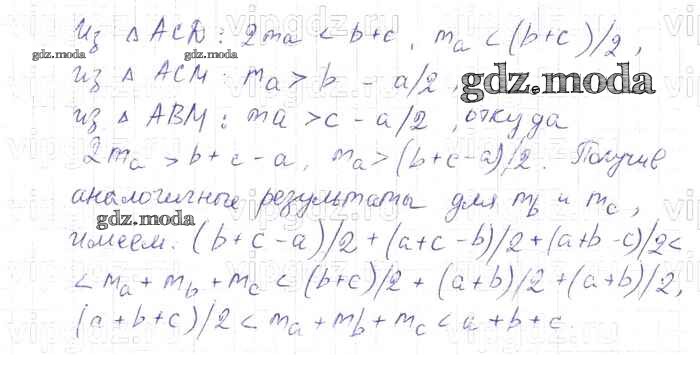 Из △ ACD : 2ma < b+c, ma < (b+c)/2,
из △ ACM : ma > b - a/2,
из △ ABM : ma > c - a/2, откуда
2ma > b+c-a, ma > (b+c-a)/2. Получив
аналогичные результаты для mb и mc,
имеем: (b+c-a)/2 + (a+c-b)/2 + (a+b-c)/2 <
< ma + mb + mc < (b+c)/2 + (a+b)/2 + (a+b)/2,
(a+b+c)/2 < ma + mb + mc < a+b+c
gdz.moda
gdz.moda
gdz.moda
gdz.moda